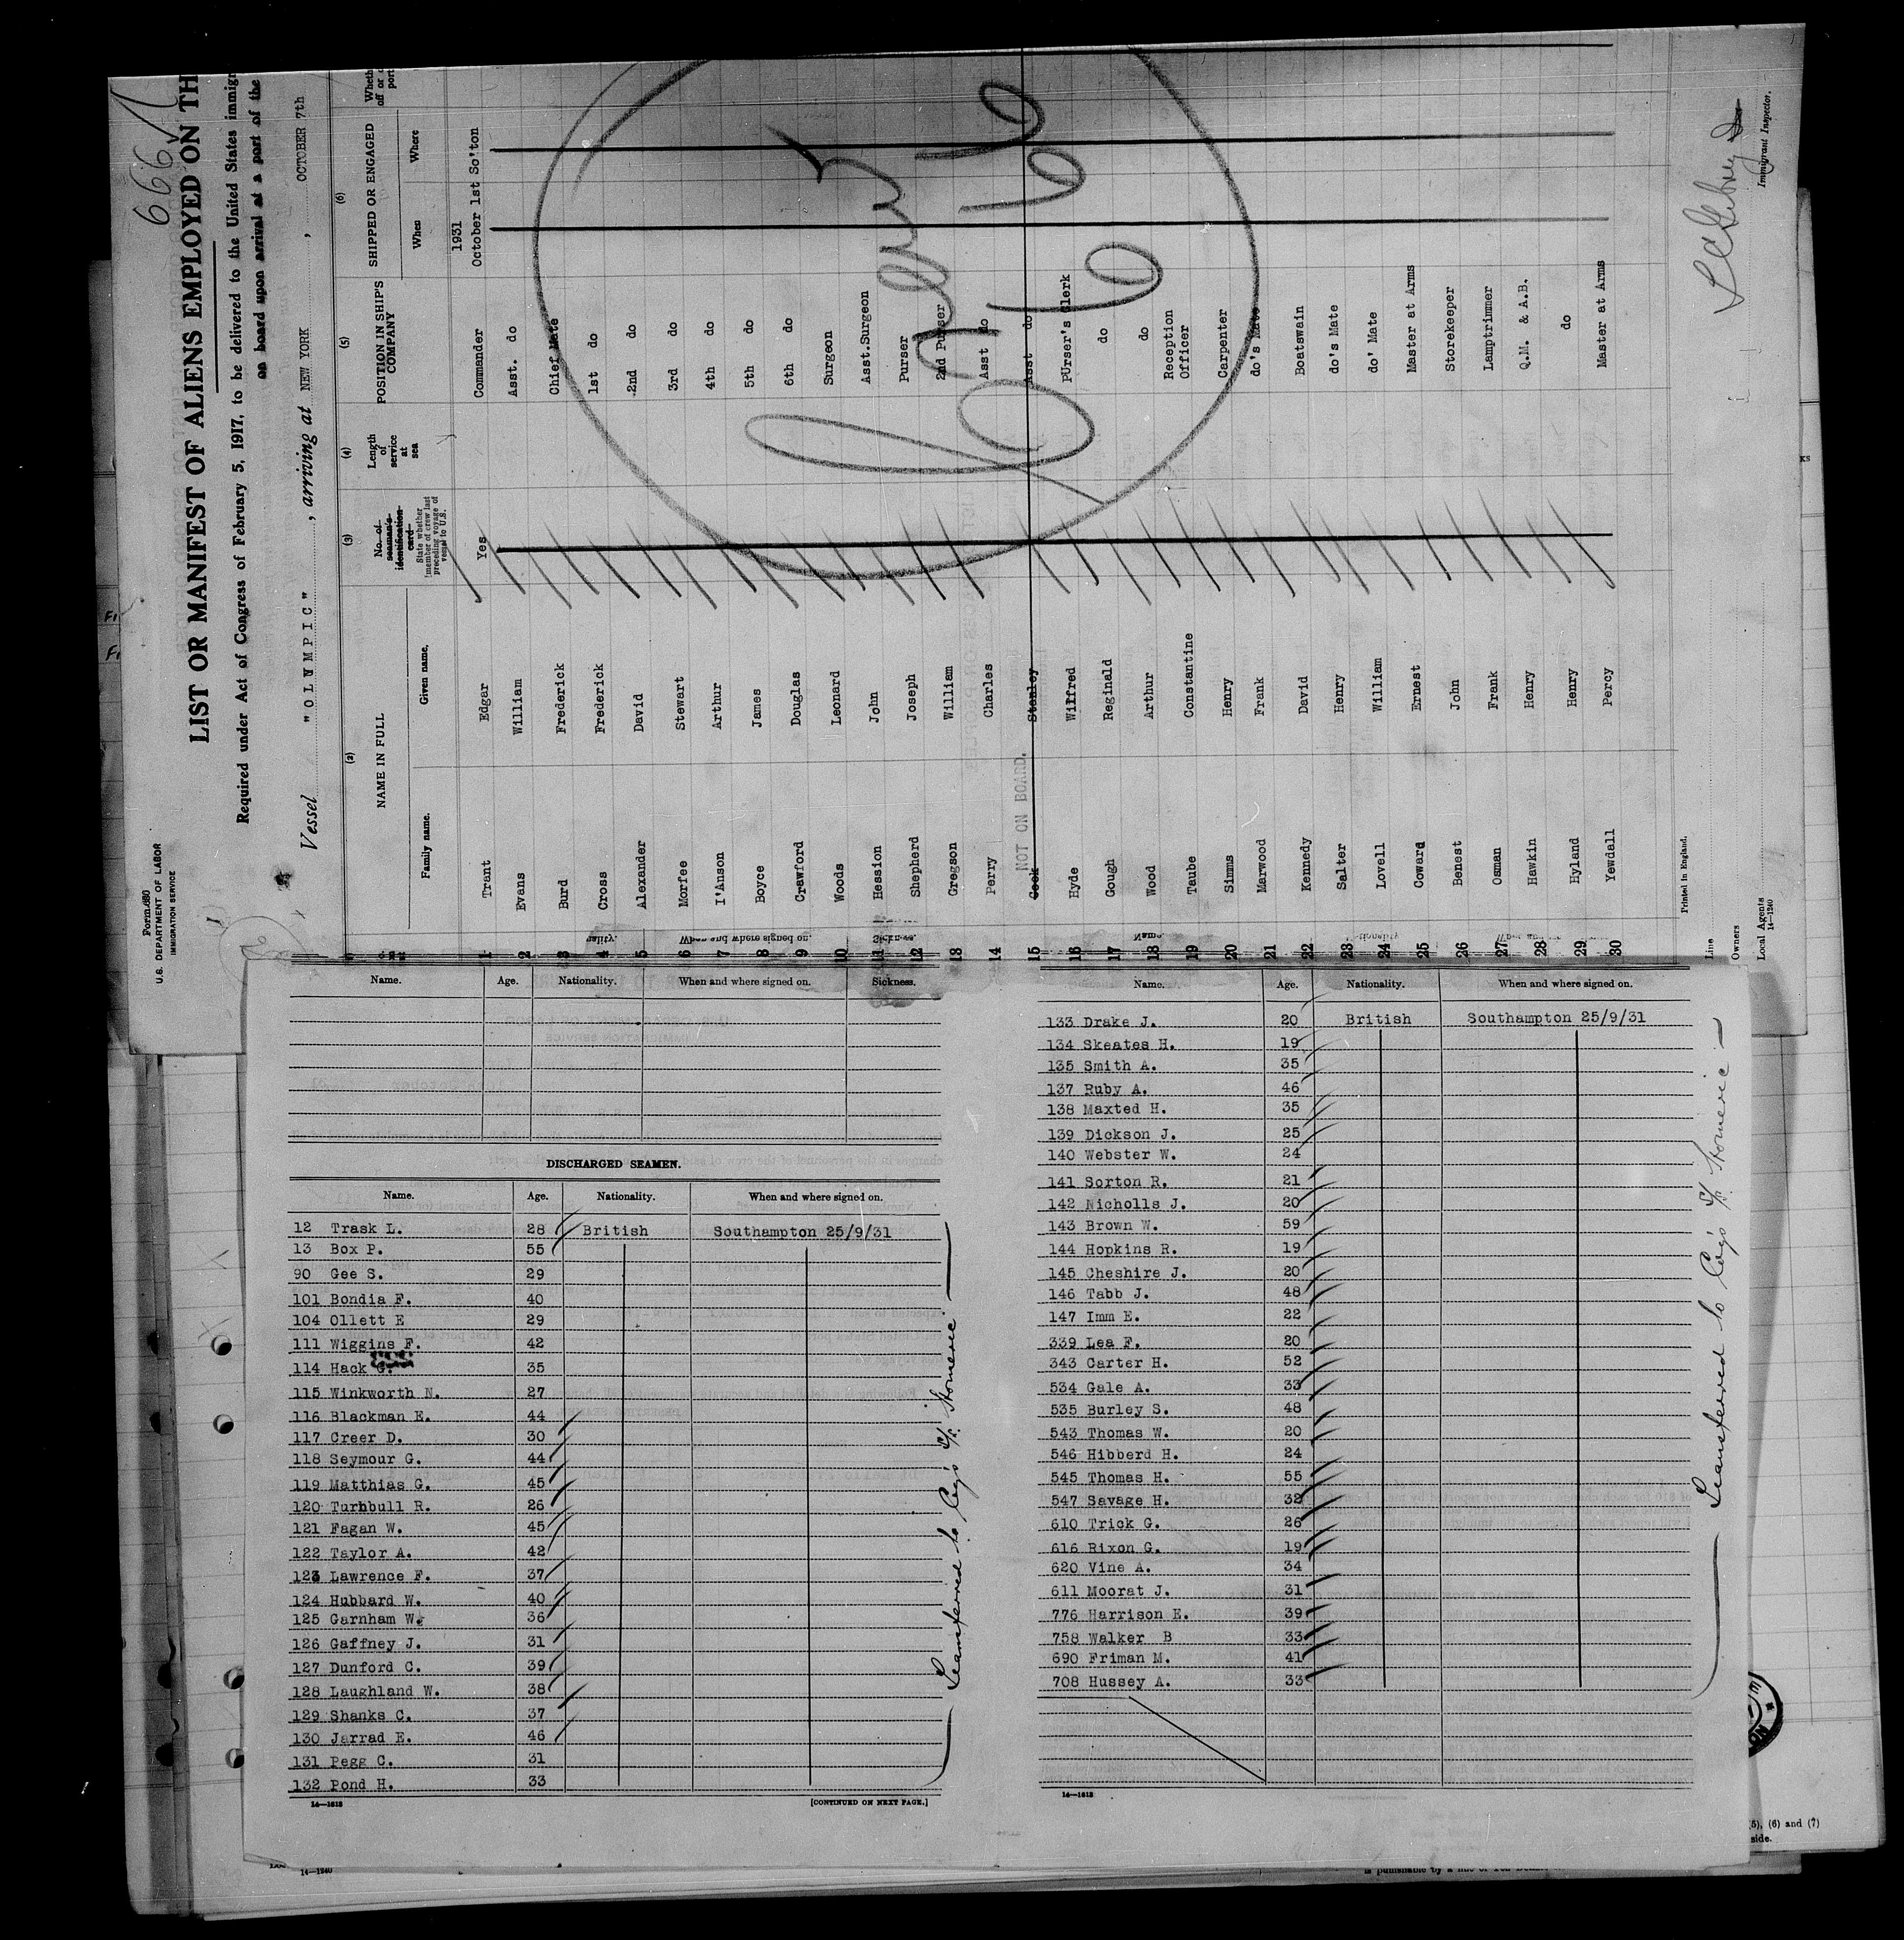 666
Form 680
U.S. DEPARTMENT OF LABOR
IMMIGRATION SERVICE
LIST OR MANIFEST OF ALIENS EMPLOYED ON TH
Required under Act of Congress of February 5, 1917, to be delivered to the United States immigr
on board upon arrival at a port of the
Vessel "OLYMPIC", arriving at NEW YORK, OCTOBER 7th
(2) (3) (4) (5) (6)
NAME IN FULL
Family name. Given name.
No. of seaman's identification card
State whether member of crew last preceding voyage of vessel to U.S.
Length of service at sea
POSITION IN SHIP'S COMPANY
SHIPPED OR ENGAGED
When Where
1931
1 Trant Edgar Yes Commander October 1st So'ton
2 Evans William Asst. do
3 Burd Frederick Chief Mate
4 Cross Frederick 1st do
5 Alexander David 2nd do
6 Morfee Stewart 3rd do
7 I'Anson Arthur 4th do
8 Boyce James 5th do
9 Crawford Douglas 6th do
10 Woods Leonard Surgeon
11 Hession John Asst.Surgeon
12 Shepherd Joseph Purser
13 Gregson William 2nd Purser
14 Perry Charles Asst do
15 Cook Stanley Asst do
NOT ON BOARD.
16 Hyde Wilfred PUrser's Clerk
17 Gough Reginald do
18 Wood Arthur do
19 Taube Constantine Reception Officer
20 Simms Henry Carpenter
21 Marwood Frank do's Mate
22 Kennedy David Boatswain
23 Salter Henry do's Mate
24 Lovell William do' Mate
25 Coward Ernest Master at Arms
26 Benest John Storekeeper
27 Osman Frank Lamptrimmer
28 Hawkin Henry Q.M. & A.B.
29 Hyland Henry do
30 Yewdall Percy Master at Arms
666
Printed in England.
Line
Owners
Local Agents
14—1240
Immigrant Inspector.
Name. Age. Nationality. When and where signed on. Sickness.
DISCHARGED SEAMEN.
Name. Age. Nationality. When and where signed on.
12 Trask L. 28 British Southampton 25/9/31
13 Box P. 55
90 Gee S. 29
101 Bondia F. 40
104 Ollett E 29
111 Wiggins F. 42
114 Hack G. 35
115 Winkworth N. 27
116 Blackman E. 44
117 Creer D. 30
118 Seymour G. 44
119 Matthias G. 45
120 Turnbull R. 26
121 Fagan W. 45
122 Taylor A. 42
123 Lawrence F. 37
124 Hubbard W. 40
125 Garnham W. 36
126 Gaffney J. 31
127 Dunford C. 39
128 Laughland W. 38
129 Shanks C. 37
130 Jarrad E. 46
131 Pegg C. 31
132 Pond H. 33
14—1613
[CONTINUED ON NEXT PAGE.]
Transferred to Coy's S/S. Homeric
Name. Age. Nationality. When and where signed on.
133 Drake J. 20 British Southampton 25/9/31
134 Skeates H. 19
135 Smith A. 35
137 Ruby A. 46
138 Maxted H. 35
139 Dickson J. 25
140 Webster W. 24
141 Sorton R. 21
142 Nicholls J. 20
143 Brown W. 59
144 Hopkins R. 19
145 Cheshire J. 20
146 Tabb J. 48
147 Imm E. 22
339 Lea F. 20
343 Carter H. 52
534 Gale A. 33
535 Burley S. 48
543 Thomas W. 20
546 Hibberd H. 24
545 Thomas H. 55
547 Savage H. 32
610 Trick G. 26
616 Rixon G. 19
620 Vine A. 34
611 Moorat J. 31
776 Harrison E. 39
758 Walker B 33
690 Friman M. 41
708 Hussey A. 33
14—1613
Transferred to Coy's S/S. Homeric
(5), (6) and (7)
side.
14—1240